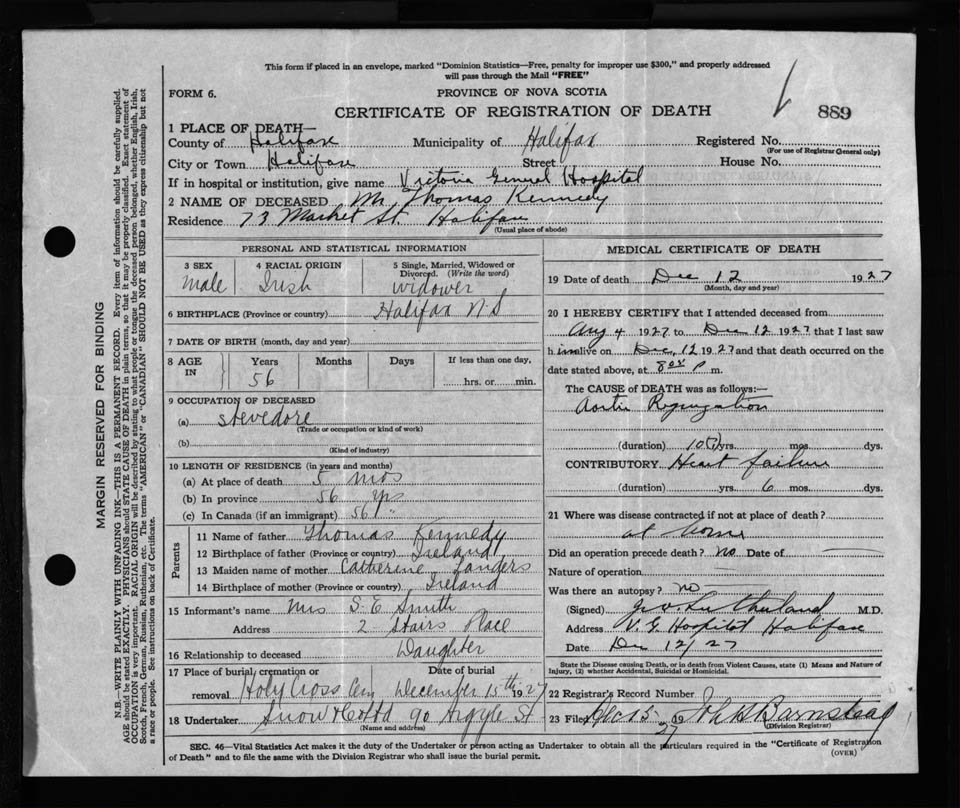 This form if placed in an envelope, marked "Dominion Statistics—Free, penalty for improper use $300," and properly addressed
will pass through the Mail "FREE"
FORM 6.
PROVINCE OF NOVA SCOTIA
CERTIFICATE OF REGISTRATION OF DEATH
889
1 PLACE OF DEATH—
County of Halifax Municipality of Halifax Registered No.
(For use of Registrar General only)
City or Town Halifax Street House No.
If in hospital or institution, give name Victoria General Hospital
2 NAME OF DECEASED Mr Thomas Kennedy
Residence 73 Market St Halifax
(Usual place of abode)
PERSONAL AND STATISTICAL INFORMATION
3 SEX 4 RACIAL ORIGIN 5 Single, Married, Widowed or
Divorced. (Write the word)
Male Irish widower
6 BIRTHPLACE (Province or country) Halifax N S
7 DATE OF BIRTH (month, day and year)
8 AGE IN Years Months Days If less than one day,
56 hrs. or min.
9 OCCUPATION OF DECEASED
(a) stevedore
(Trade or occupation or kind of work)
(b)
(Kind of industry)
10 LENGTH OF RESIDENCE (in years and months)
(a) At place of death 5 mos
(b) In province 56 yrs
(c) In Canada (if an immigrant) 56 "
Parents
11 Name of father Thomas Kennedy
12 Birthplace of father (Province or country) Ireland
13 Maiden name of mother Catherine
14 Birthplace of mother (Province or country) Ireland
15 Informant's name Mrs S. E. Smith
Address 2 Stairs Place
16 Relationship to deceased Daughter
17 Place of burial, cremation or Date of burial
removal Holy Cross Cem December 15th 1927
18 Undertaker Snow & Co Ltd 90 Argyle St
(Name and address)
MEDICAL CERTIFICATE OF DEATH
19 Date of death Dec 12 1927
(Month, day and year)
20 I HEREBY CERTIFY that I attended deceased from
Aug 4 1927 to Dec 12 1927 that I last saw
him alive on Dec, 12 1927 and that death occurred on the
date stated above, at 8 P m.
The CAUSE of DEATH was as follows:—
Aortic Regurgitation
(duration) 10(?) yrs. mos. dys.
CONTRIBUTORY Heart failure
(duration) yrs. 6 mos. dys.
21 Where was disease contracted if not at place of death?
at home
Did an operation precede death? no Date of
Nature of operation
Was there an autopsy? no
(Signed) Sutherland M.D.
Address V. G. Hospital Halifax
Date Dec 12/27
State the Disease causing Death, or in death from Violent Causes, state (1) Means and Nature of
Injury, (2) whether Accidental, Suicidal or Homicidal.
22 Registrar's Record Number
23 Filed Dec 15 1927 John H Barnstead
(Division Registrar)
SEC. 46—Vital Statistics Act makes it the duty of the Undertaker or person acting as Undertaker to obtain all the particulars required in the "Certificate of Registration
of Death" and to file the same with the Division Registrar who shall issue the burial permit.
(OVER)
MARGIN RESERVED FOR BINDING
N.B.—WRITE PLAINLY WITH UNFADING INK—THIS IS A PERMANENT RECORD. Every item of information should be carefully supplied.
AGE should be stated EXACTLY. PHYSICIANS should STATE CAUSE OF DEATH in plain terms, so that it may be properly classified. Exact statement of
OCCUPATION is very important. RACIAL ORIGIN will be described by stating to what people or tongue the deceased person belonged, whether English, Irish,
Scotch, French, German, Russian, Ruthenian, etc. The terms "AMERICAN" or "CANADIAN" SHOULD NOT BE USED as they express citizenship but not
a race or people. See instructions on back of Certificate.